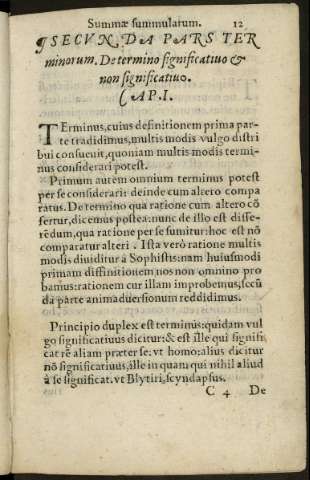 Summæ summularum. 12
¶SECVN DA PARS TER
minorum. De termino significatiuo &
non significatiuo.
CAP. I.
TErminus, cuius definitionem prima par-
te tradidimus, multis modis vulgo distri
bui consueuit, quoniam multis modis termi-
nus considerari potest.
Primum autem omnium terminus potest
per se considerari: deinde cum altero compa
ratus. De termino qua ratione cum altero cō
fertur, dicemus postea: nunc de illo est disse-
rēdum, qua ratione per se sumitur: hoc est nō
comparatur alteri. Ista verò ratione multis
modis diuiditur à Sophistis: nam huiusmodi
primam diffinitionem nos non omnino pro
bamus: rationem cur illam improbemus, secū
da parte animaduersionum reddidimus.
Principio duplex est terminus: quidam vul
go significatiuus dicitur: & est ille qui signifi
cat rē aliam præter se: vt homo: alius dicitur
nō significatiuus, ille inquam qui nihil aliud
à se significat. vt Blytiri, scyndapsus.
C 4 De